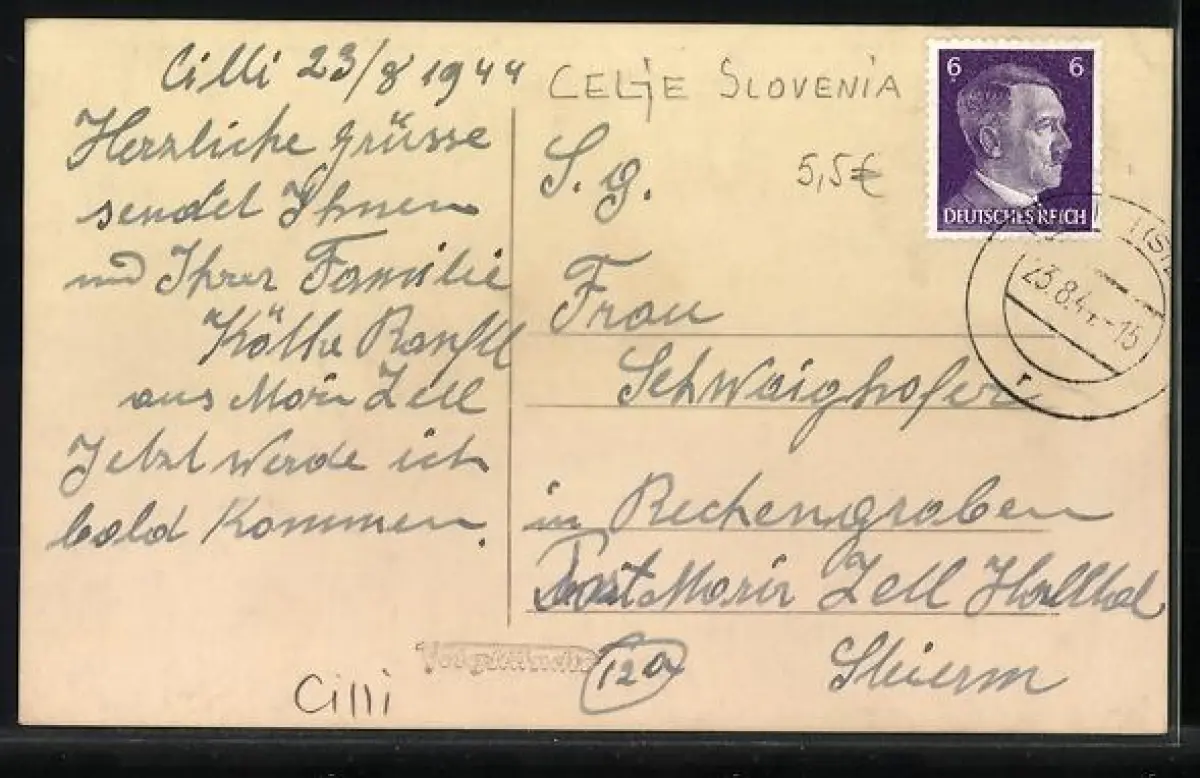 Cilli 23/8 1944
Herzliche Grüsse
sendet Ihnen
und Ihrer Familie
Käthe
aus Maria Zell
Jetzt werde ich
bald Kommen.
CELJE SLOVENIA
5,5€
6 6
DEUTSCHES REICH
23.8.44 -15
r
S. g.
Frau
Schwaighofer
in Rechengraben
Post Maria Zell Hallthal
12a
Steierm
Cilli